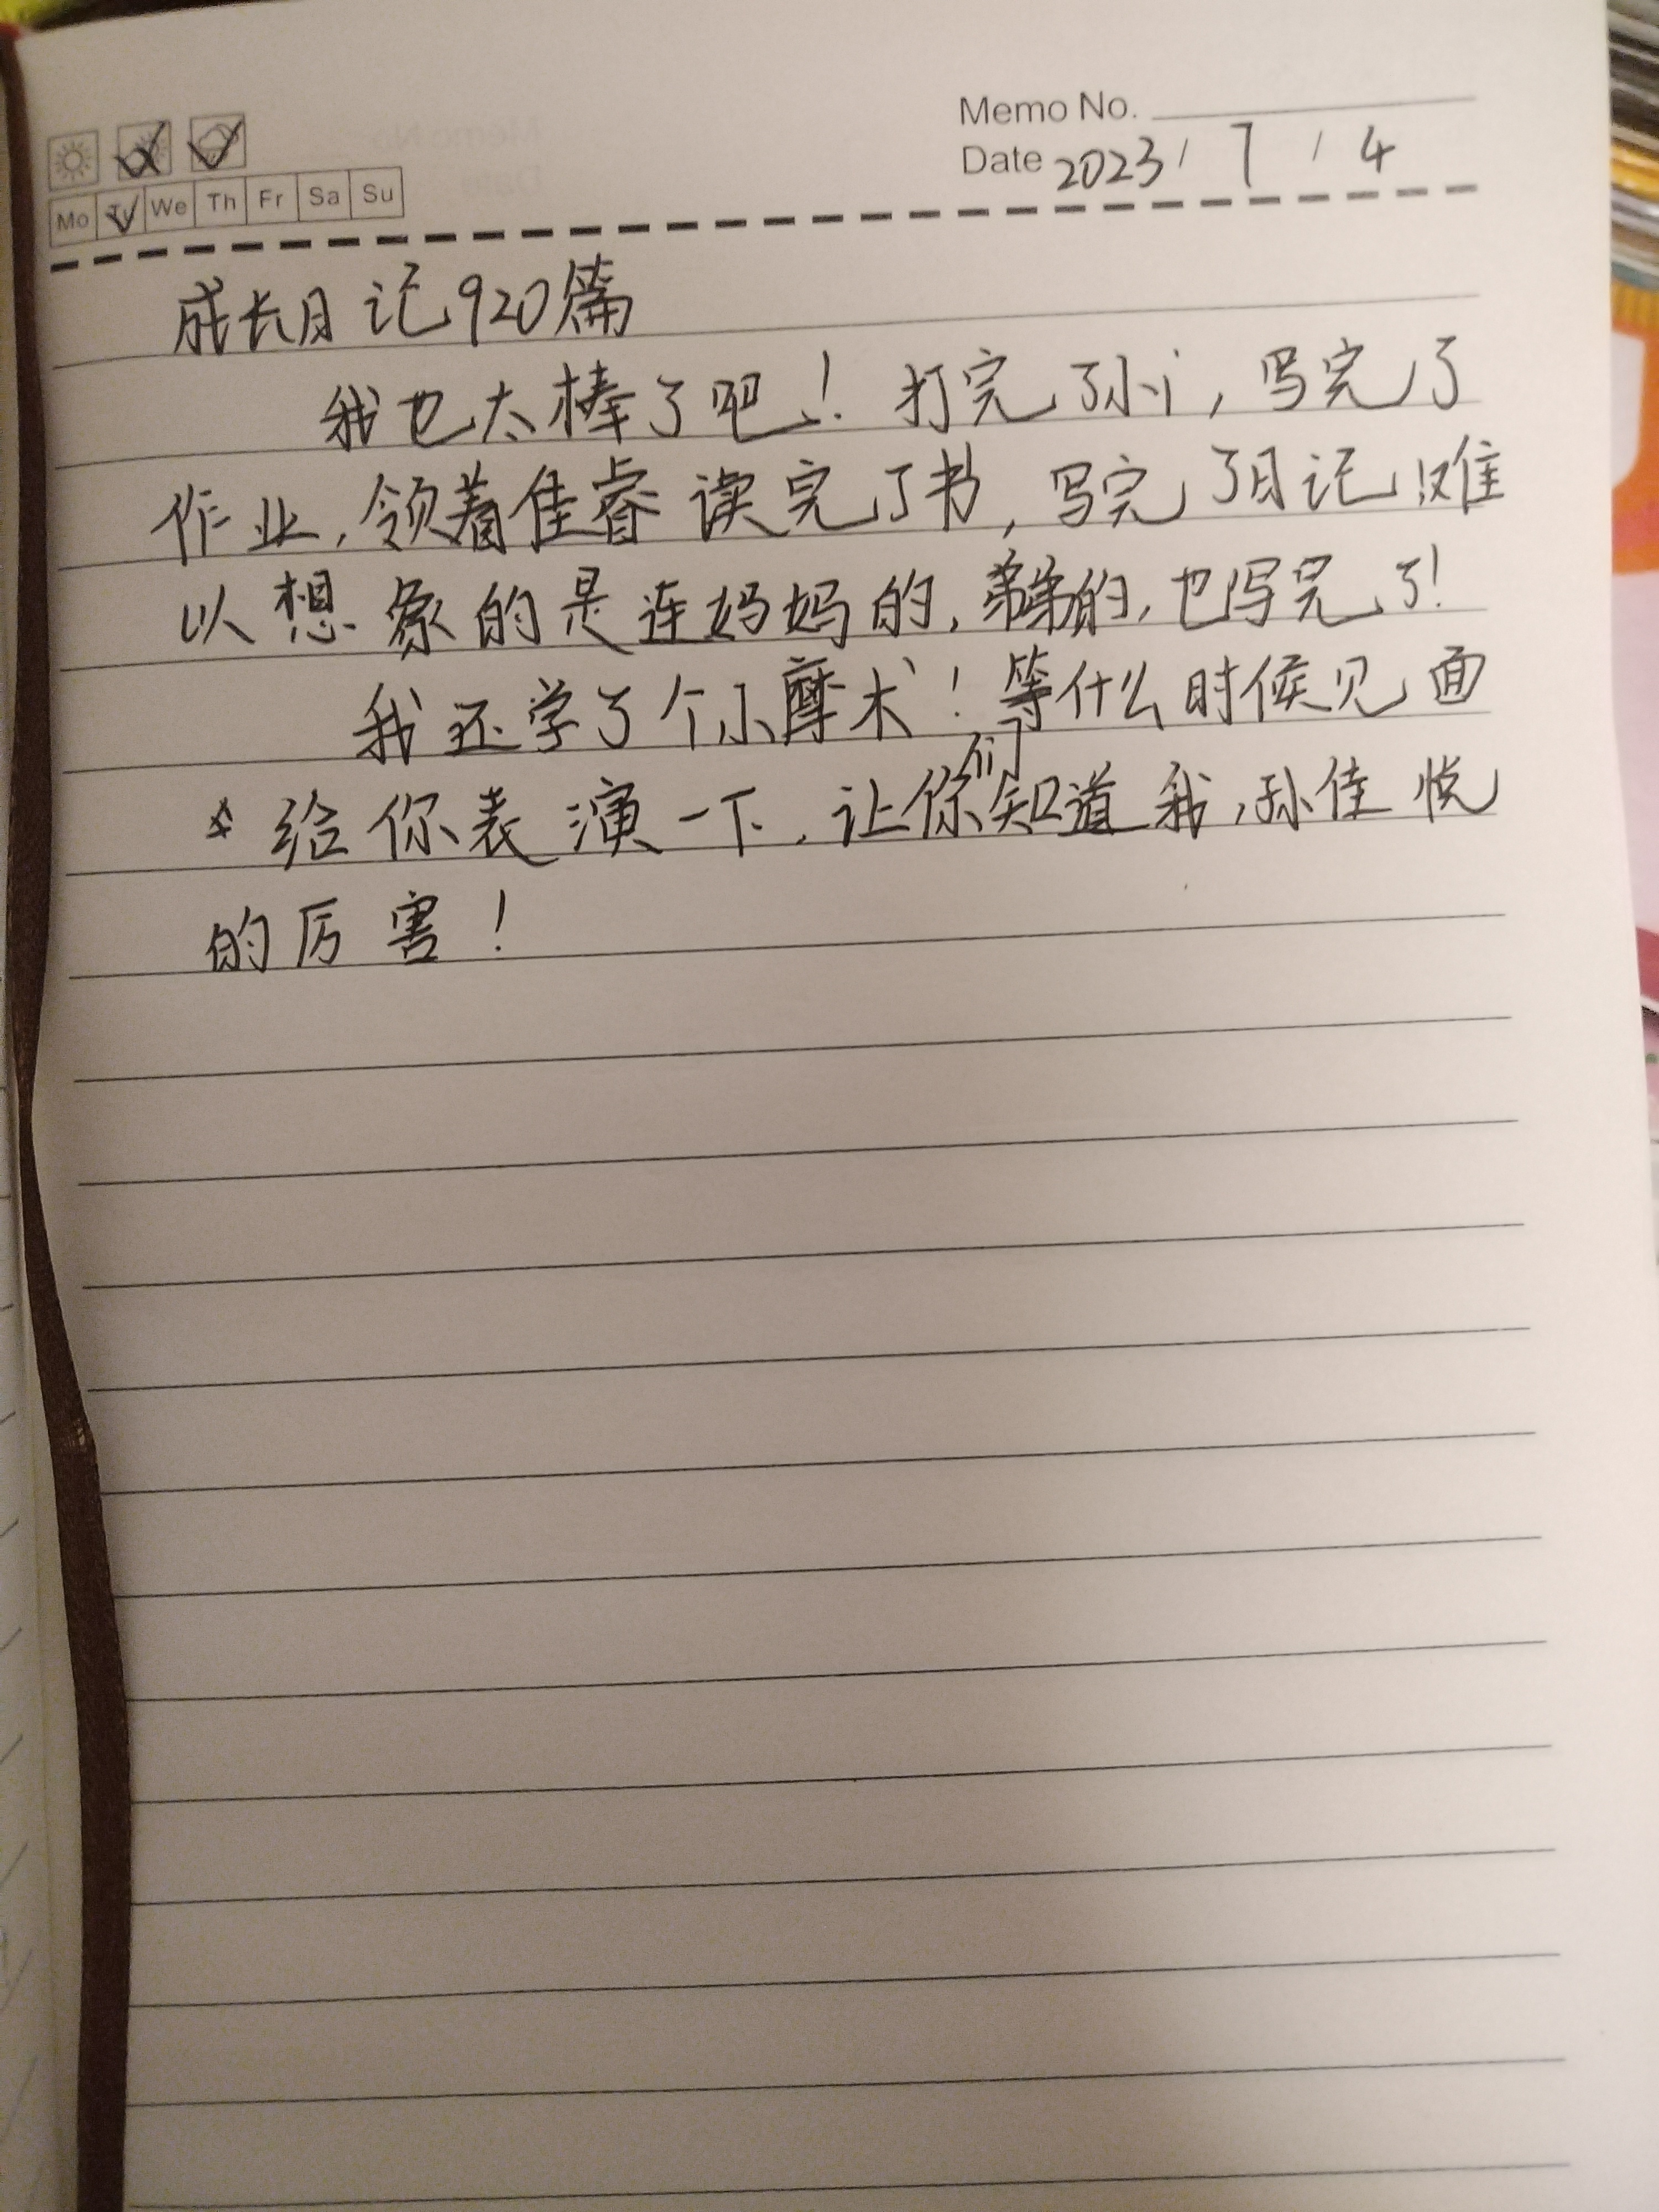 Memo No.
Date 2023/7/4
Mo Tu We Th Fr Sa Su
成长日记920篇
我也太棒了吧！打完了小i，写完了
作业，领着佳睿读完了书，写完了日记难
以想象的是连妈妈的，弟弟的，也写完了！
我还学了个小摩术！等什么时候见面
给你表演一下，让你们知道我，孙佳悦
的厉害！